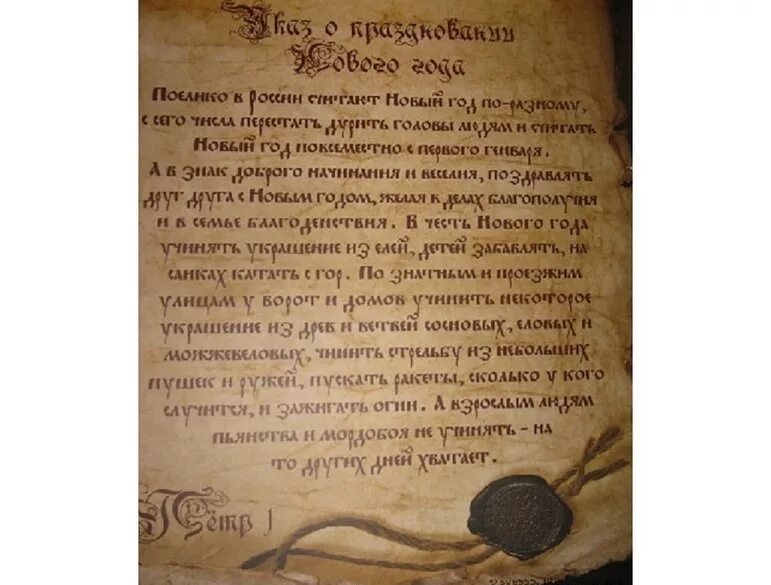 Указ о праздновании
Нового года
Поелико в России считают Новый год по-разному,
с сего числа перестать дурить головы людям и считать
Новый год повсеместно с первого генваря.
А в знак доброго начинания и веселия, поздравлять
друг друга с Новым годом, желая в делах благополучия
и в семье благоденствия. В честь Нового года
учинять украшение из елей, детей забавлять, на
санках катать с гор. По знатным и проезжим
улицам у ворот и домов учинить некоторое
украшение из древ и ветвей сосновых, еловых и
можжевеловых, чинить стрельбу из небольших
пушек и ружей, пускать ракеты, сколько у кого
случится, и зажигать огни. А взрослым людям
пьянства и мордобоя не учинять - на
то других дней хватает.
Пётр I